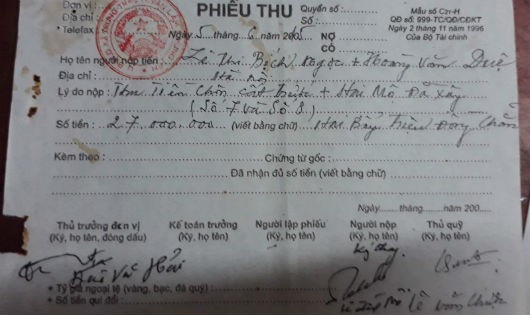 Đơn vị :
Địa chỉ :
* Telefax
PHIẾU THU
Quyển số :
Số :
Mẫu số C21-H
QĐ số: 999-TC/QĐ/CĐKT
Ngày 2 tháng 11 năm 1996
Của Bộ tài chính
Ngày 5 tháng 6 năm 200
NỢ
CÓ
Họ tên người nộp tiền : Lê Thị Bích Ngọc + Hoàng Văn Duệ
Địa chỉ : Hà Nội
Lý do nộp : Thu tiền Chôn cất + Hai Mộ Đã Xây
( Số 7 và Số 8 )
Số tiền : 27.000.000 (viết bằng chữ) Hai Bảy Triệu Đồng Chẵn
Kèm theo : Chứng từ gốc :
Đã nhận đủ số tiền (viết bằng chữ)
Ngày tháng năm 200
Thủ trưởng đơn vị Kế toán trưởng Người lập phiếu Người nộp Thủ quỹ
(Ký, họ tên, đóng dấu) (Ký, họ tên) (Ký, họ tên) (Ký, họ tên) (Ký, họ tên)
+ Tỷ giá ngoại tệ (vàng, bạc, đá quý) :
+ Số tiền qui đổi :
Lê Văn